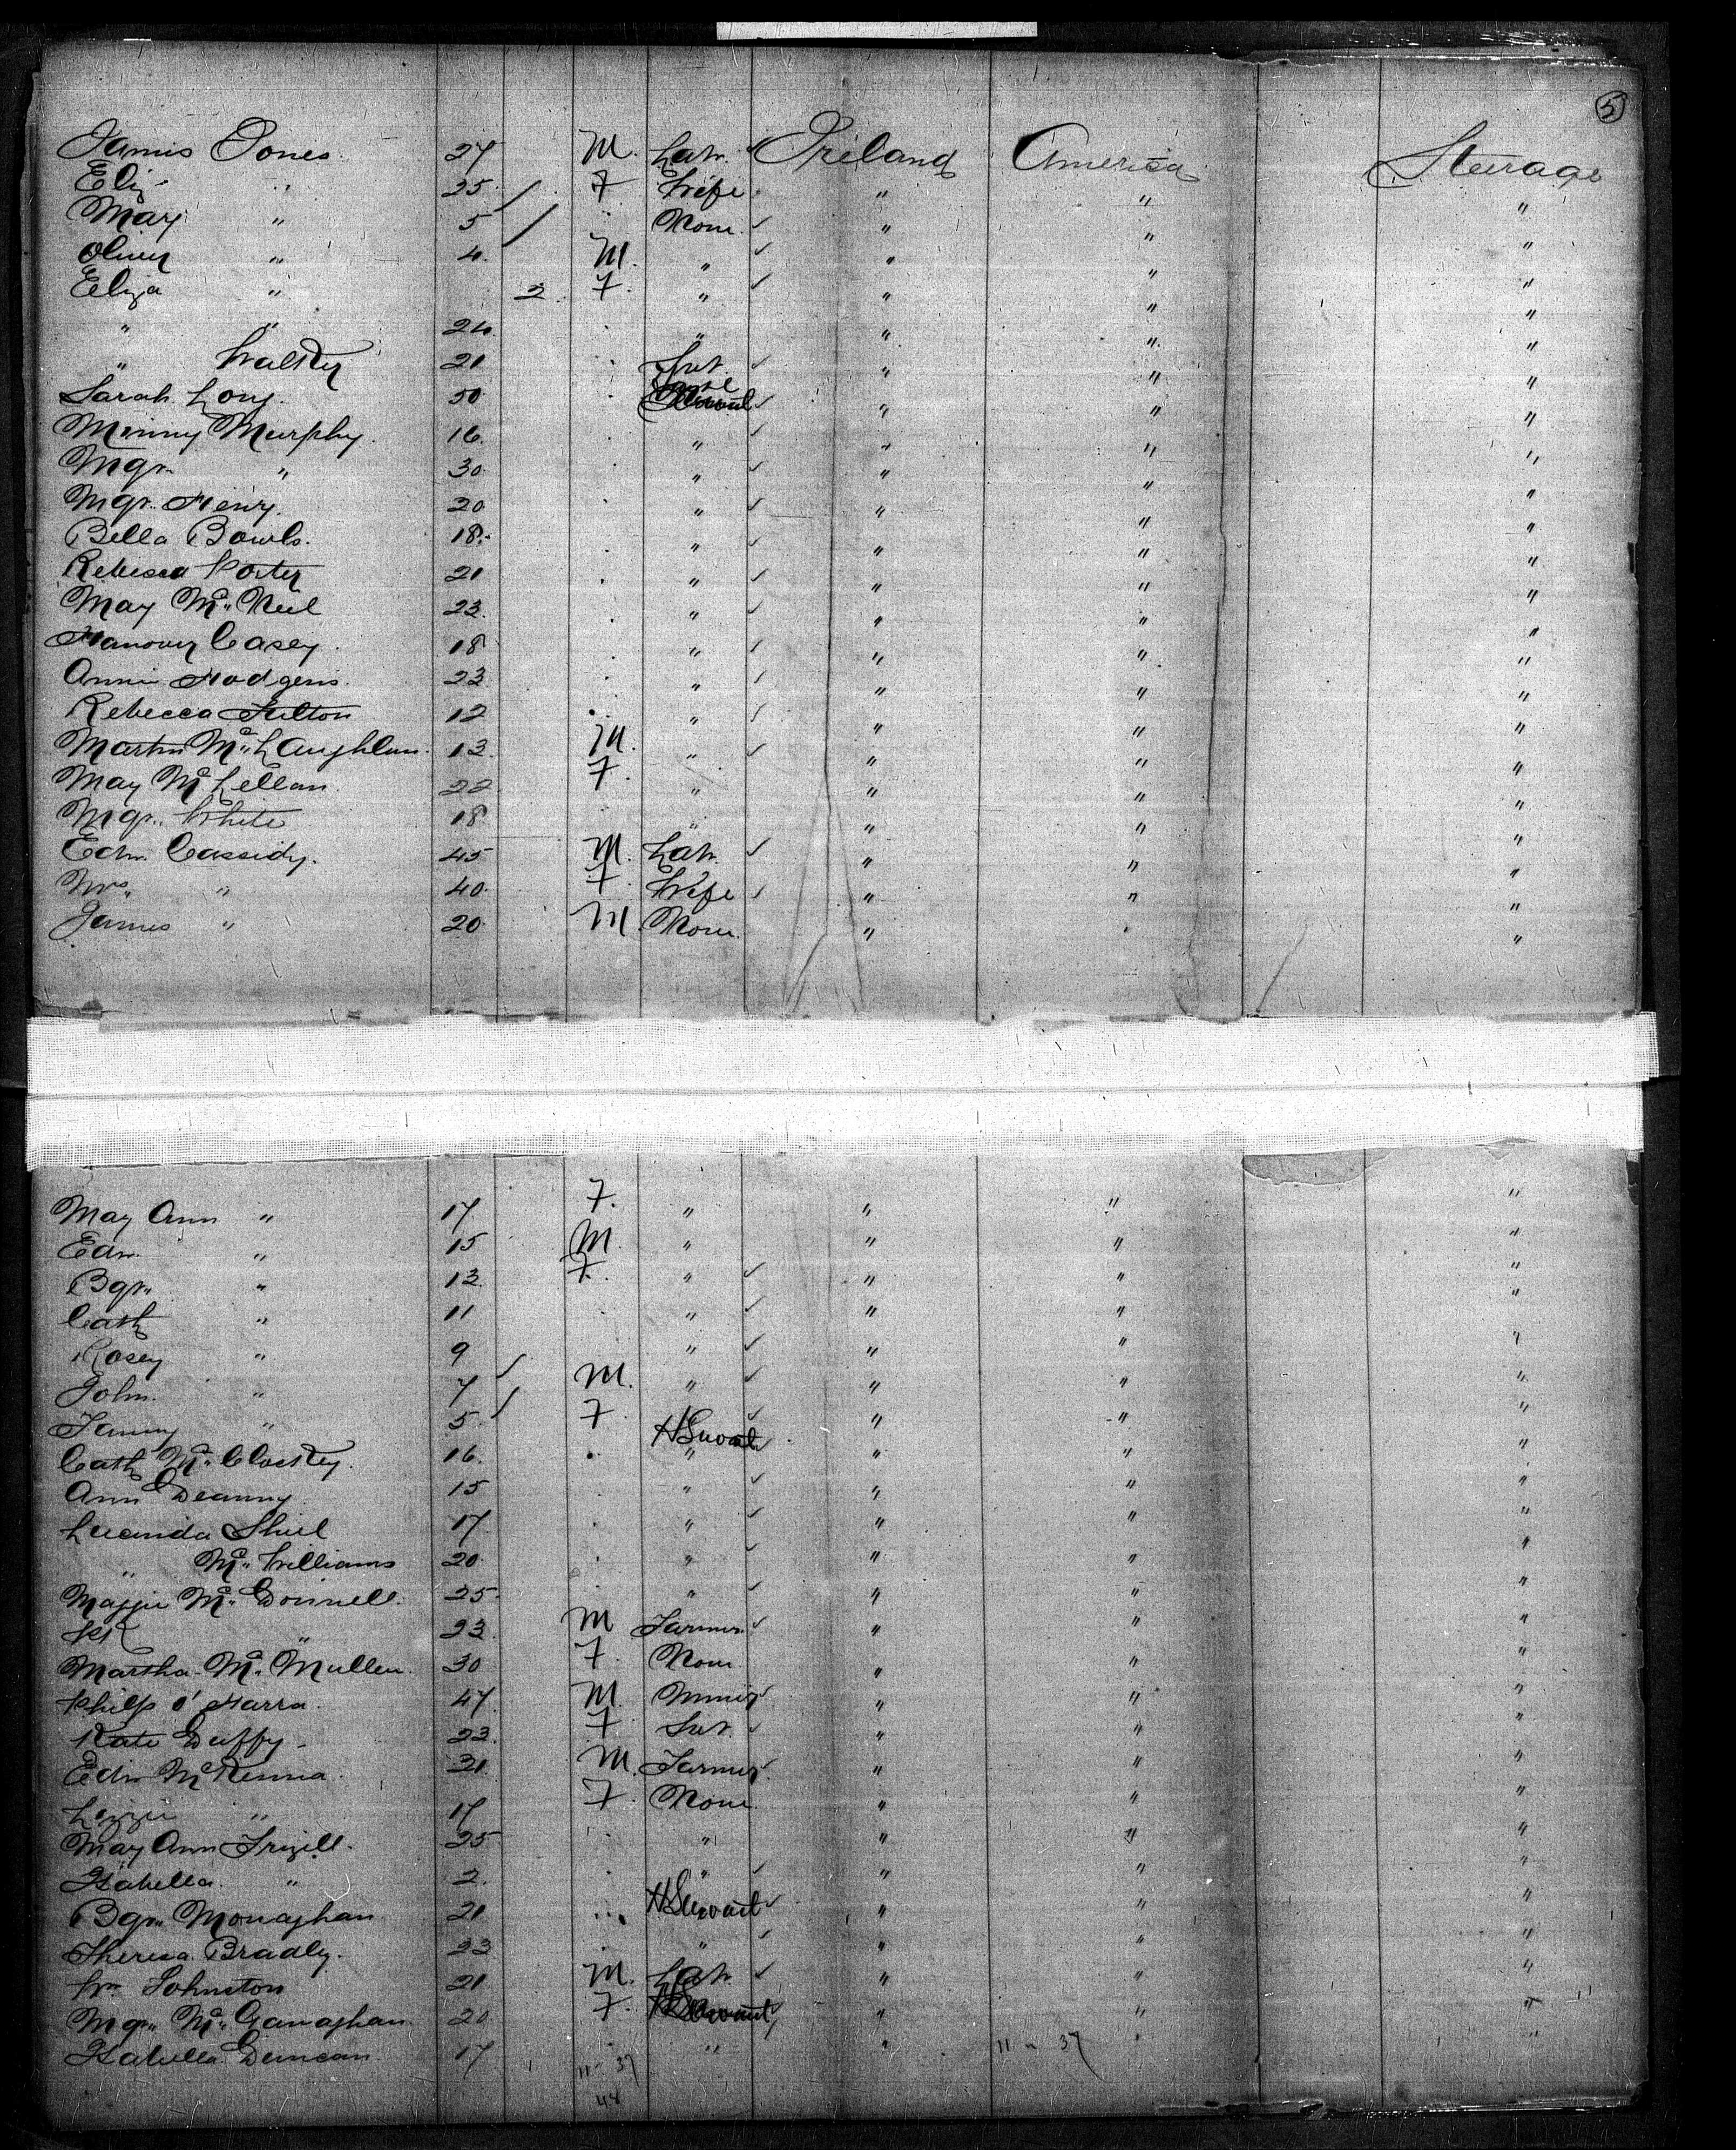 5
James Jones. 27 M. Labr. Ireland America Steerage
Eliz " 25 F Wife " " "
Mary " 5 " None " " "
Oliver " 4 M. " " " "
Eliza " 2 F. " " " "
" " 24 " " " " "
" Walker 21 " Svt. " " "
Sarah Long. 50 " " " "
Minny Murphy. 16. " " " " "
Mgt. " 30 " " " " "
Mgt. Henry. 20 " " " " "
Bella Bowls. 18. " " " " "
Rebecca Porter 21 " " " " "
Mary Mc. Neil 23 " " " " "
Hanover Casey. 18 " " " " "
Annie Hodgens. 23 " " " " "
Rebecca Fulton 12 " " " " "
Martin Mc. Laughlin. 13 M. " " " "
Mary Mc Lellan. 22 F. " " " "
Mgt. White 18 " " " " "
Edw. Cassidy. 45 M. Labr. " " "
Mrs. " 40 F. Wife " " "
James " 20 M None " " "
Mary Ann " 17 F. " " " "
Edw. " 15 M. " " " "
Bgt. " 13. F. " " " "
Cath " 11 " " " " "
Rosey " 9 " " " " "
John. " 7 M. " " " "
Fanny " 5 F " " " "
Cath Mc. Closkey. 16. " H Servant " " "
Ann Deanny 15 " " " " "
Lucinda Shiel 17 " " " " "
" Mc. Williams 20 " " " " "
Maggie Mc. Donnell. 25 " " " " "
Pk " 23 M Farmer " " "
Martha Mc. Mullen. 30 F. None " " "
Philip O'Harra. 47 M. Minner " " "
Kate Duffy 23. F. Svt. " " "
Edw McKenna. 31 M. Farmer " " "
Lizzie " 17 F. None " " "
Mary Ann Frizell. 25 " " " " "
Isabella. " 2. " " " " "
Bgt. Monaghan 21 " H Servant " " "
Theresa Bradly. 23 " " " " "
Wm Johnston 21 M. Labr. " " "
Mgt. Mc. Ganaghan 20 F. H Servant " " "
Isabella Duncan. 17 " " " " "
11 - 37 11 - 37
48